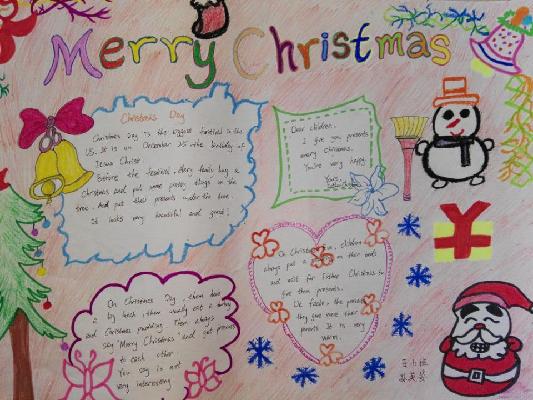 Merry Christmas
Christmas Day
Christmas Day is the biggest festival in the
US. It is on December 25 the birthday of
Jesus Christ.
Before the festival, every family buy a
Christmas and put some pretty things on the
tree. And put shoes presents under the tree.
It looks very beautiful and good!
Dear children.
I give you presents
every Christmas.
You're very happy.
Yours,
On Christmas Eve, children
always put a on their beds
and wait for Father Christmas to
give them presents.
the presents
they give were their
parents It is very
warm.
On Christmas Day, them have
a big lunch, them usually eat a turkey
and Christmas pudding. Them always
say "Merry Christmas" and get presents
to each other
You say is not
very interesting